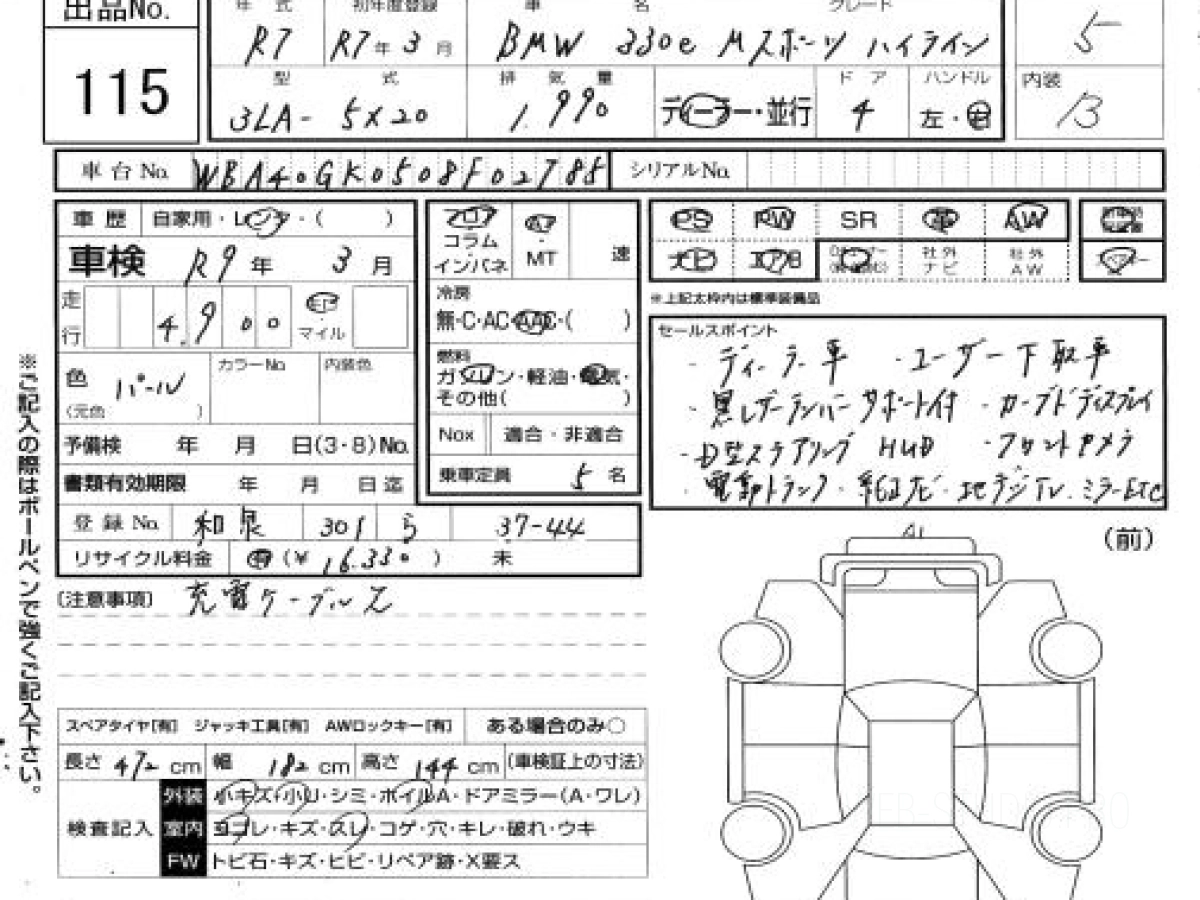 出品No. 年 式 初年度登録 車 名 グレード
115 R7 R7年 3月 BMW 330e Mスポーツ ハイライン 5
型 式 排 気 量 ドア ハンドル 内装
3LA- 5X20 1.990 ディーラー・並行 4 左・右 B
車台No. WBA40GK0508F02785 シリアルNo.
車歴 自家用・レンタ・( ) フロア コラム インパネ AT・MT 速 PS PW SR 革 AW
車検 R9年 3月 ナビ エアB 社外ナビ 社外AW
※上記太枠内は標準装備品
走行 4,900 km マイル 冷房 無・C・AC・AAC・( )
色 パール (元色 ) カラーNo. 内装色 燃料 ガソリン・軽油・電気・その他( )
予備検 年 月 日(3・8)No. Nox 適合・非適合
書類有効期限 年 月 日迄 乗車定員 5名
登録No. 和泉 301 ら 37-44
リサイクル料金 有(¥16.330) 未
セールスポイント
・ディーラー車 ・ユーザー下取車
・黒レザーランバーサポート付 ・カーブドディスプレイ
・D型ステアリング HUD ・フロントカメラ
・電動トランク・純正ナビ・地デジTV・ミラーETC
(注意事項) 充電ケーブル
(前)
A1
スペアタイヤ[有] ジャッキ工具[有] AWロックキー[有] ある場合のみ〇
長さ 472cm 幅 182cm 高さ 144cm (車検証上の寸法)
検査記入 外装 小キズ・小U・シミ・ホイルA・ドアミラー(A・ワレ)
室内 ヨゴレ・キズ・スレ・コゲ・穴・キレ・破れ・ウキ
FW トビ石・キズ・ヒビ・リペア跡・X要ス
※ご記入の際はボールペンで強くご記入下さい。